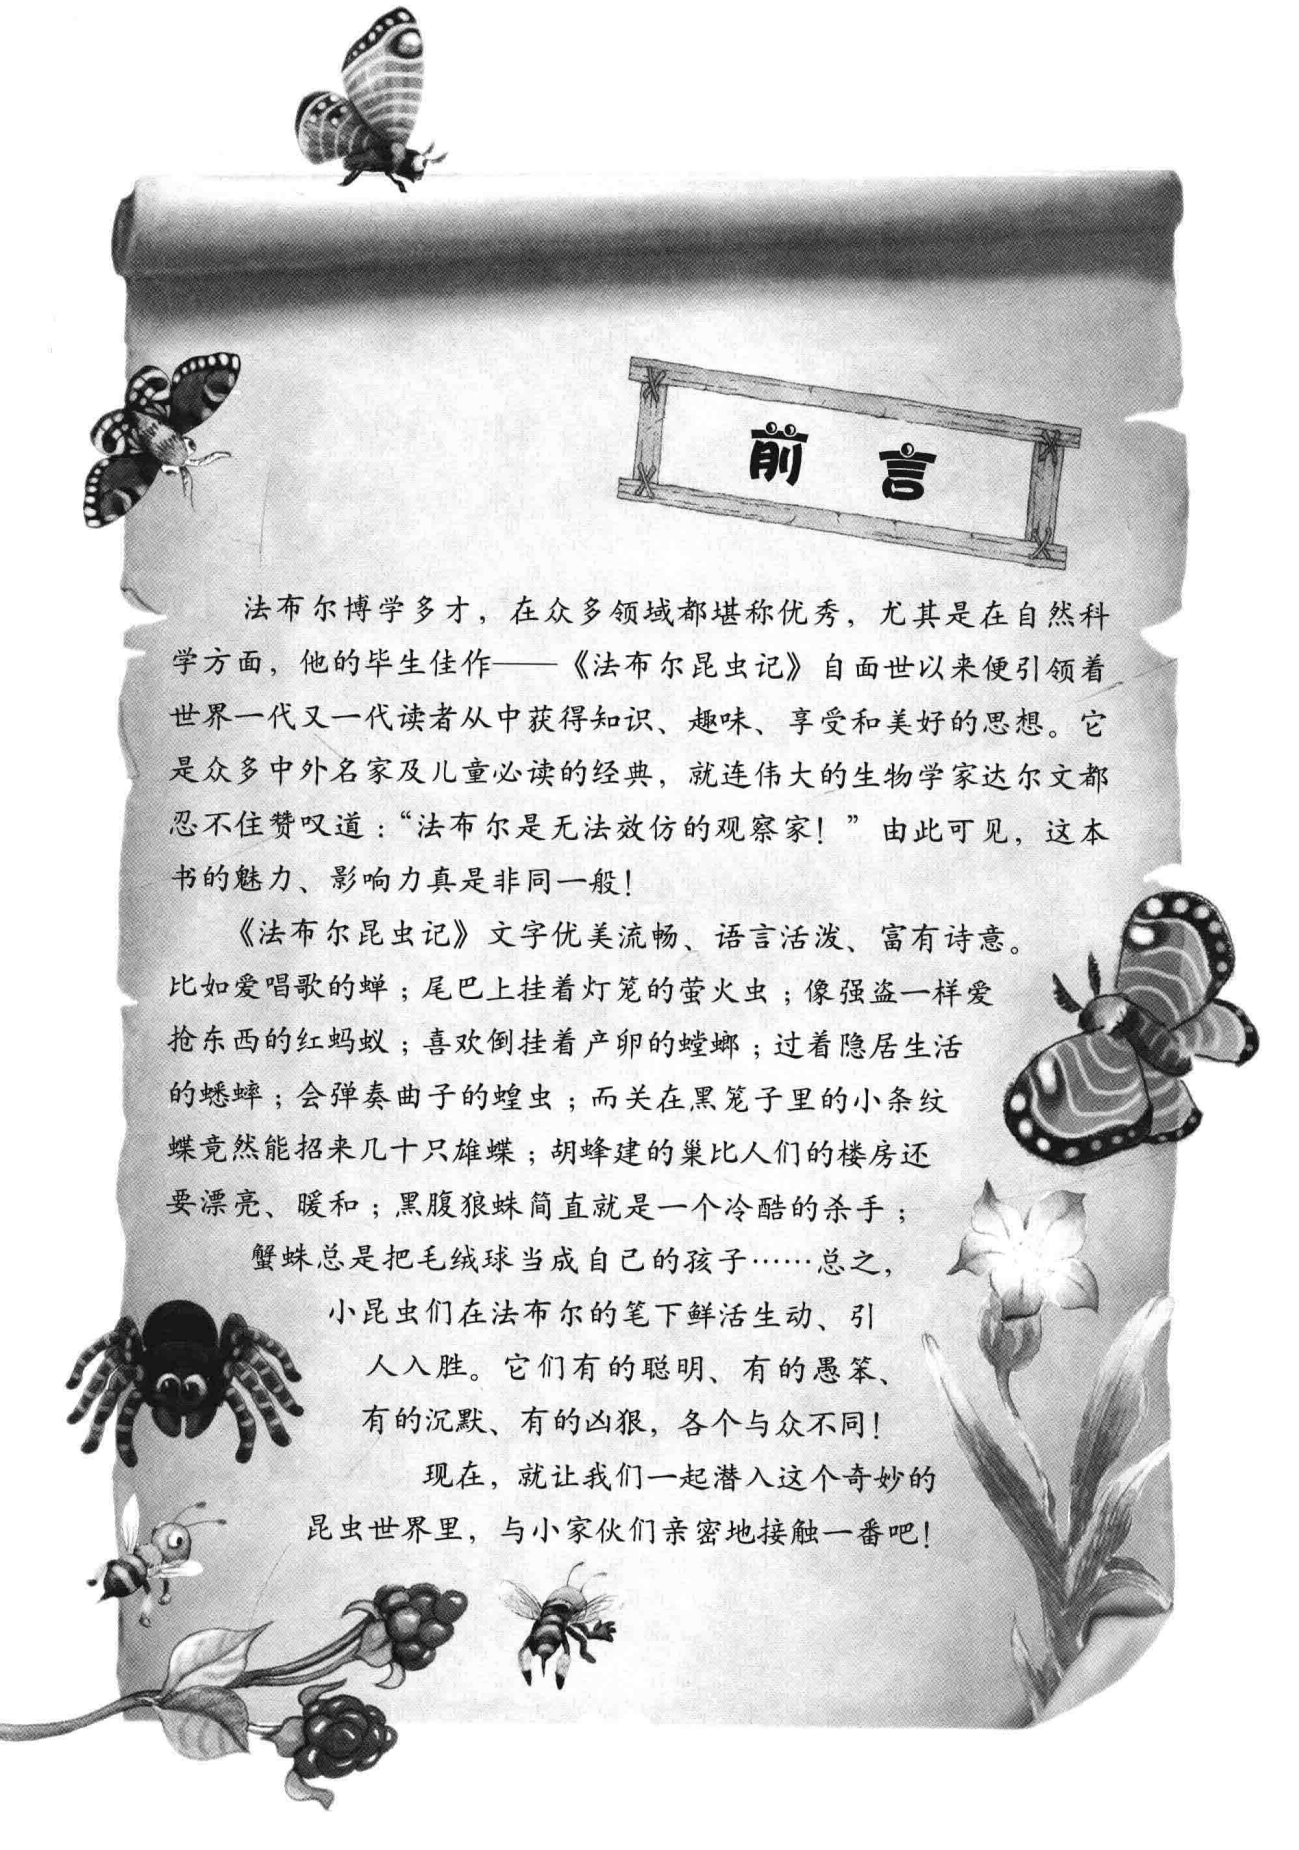 前言
法布尔博学多才，在众多领域都堪称优秀，尤其是在自然科
学方面，他的毕生佳作——《法布尔昆虫记》自面世以来便引领着
世界一代又一代读者从中获得知识、趣味、享受和美好的思想。它
是众多中外名家及儿童必读的经典，就连伟大的生物学家达尔文都
忍不住赞叹道：“法布尔是无法效仿的观察家！”由此可见，这本
书的魅力、影响力真是非同一般！
《法布尔昆虫记》文字优美流畅、语言活泼、富有诗意。
比如爱唱歌的蝉；尾巴上挂着灯笼的萤火虫；像强盗一样爱
抢东西的红蚂蚁；喜欢倒挂着产卵的螳螂；过着隐居生活
的蟋蟀；会弹奏曲子的蝗虫；而关在黑笼子里的小条纹
蝶竟然能招来几十只雄蝶；胡蜂建的巢比人们的楼房还
要漂亮、暖和；黑腹狼蛛简直就是一个冷酷的杀手；
蟹蛛总是把毛绒球当成自己的孩子……总之，
小昆虫们在法布尔的笔下鲜活生动、引
人入胜。它们有的聪明、有的愚笨、
有的沉默、有的凶狠，各个与众不同！
现在，就让我们一起潜入这个奇妙的
昆虫世界里，与小家伙们亲密地接触一番吧！